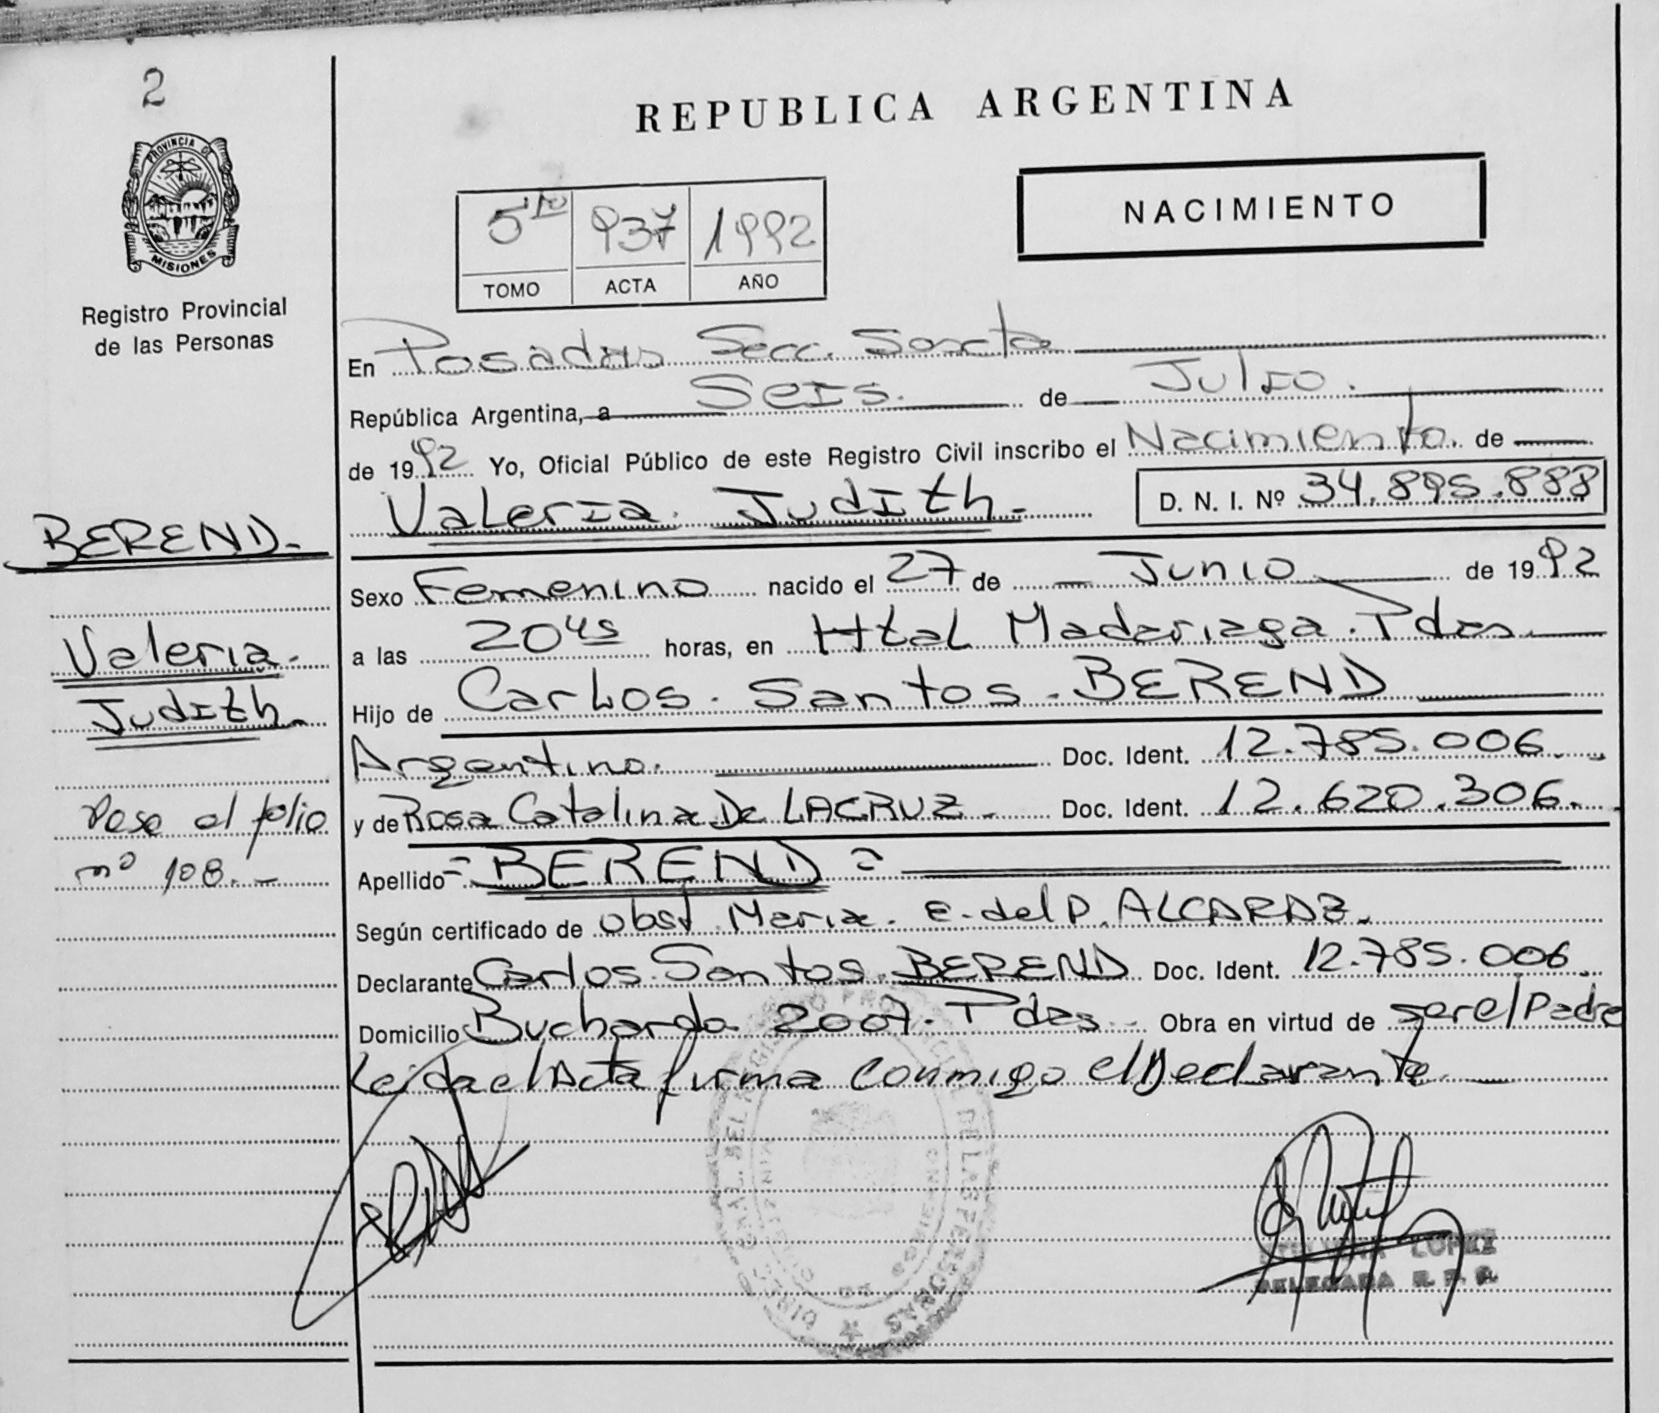 2
REPUBLICA ARGENTINA
PROVINCIA DE
MISIONES
Registro Provincial
de las Personas
NACIMIENTO
5to 937 1992
TOMO ACTA AÑO
En Posadas Secc. Sexta
República Argentina, a Seis. de Julio.
de 1992 Yo, Oficial Público de este Registro Civil inscribo el Nacimiento. de
Valeria. Judith. D. N. I. Nº 34.895.888
BEREND.
Valeria.
Judith.
Pase al folio
nº 108.-
Sexo Femenino nacido el 27 de Junio de 1992
a las 20 45 horas, en Htal Madariaga. Pdas.
Hijo de Carlos. Santos. BEREND
Argentino. Doc. Ident. 12.785.006.
y de Rosa Catalina De LACRUZ. Doc. Ident. 12.620.306.
Apellido = BEREND =
Según certificado de obst. Maria. E. del P. ALCARAZ.
Declarante Carlos. Santos. BEREND Doc. Ident. 12.785.006.
Domicilio Buchardo 2007. Pdas. Obra en virtud de ser el Padre
Leida el Acta firma conmigo el Declarante
LOPEZ
DELEGADA R. P. P.